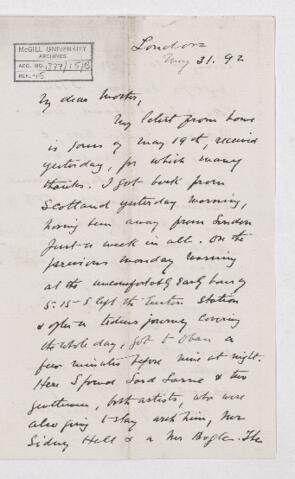 McGILL UNIVERSITY
ARCHIVES
ACC. NO.
REF. 45
London
May 31. 92
My dear
My latest from home
is yours of May 19th, received
yesterday, for which many
thanks. I got back from
Scotland yesterday morning,
having been away from London
just a week in all. On the
previous Monday morning
at the uncomfortably early hour of
5.15 I left the Euston Station
& after a tedious journey covering
the whole day, got to Oban a
few minutes before nine at night.
Here I found Lord Lorne & two
gentlemen, both artists, who were
also going to stay with him, Mr
Sidney Hall & a Mr Bogle. The